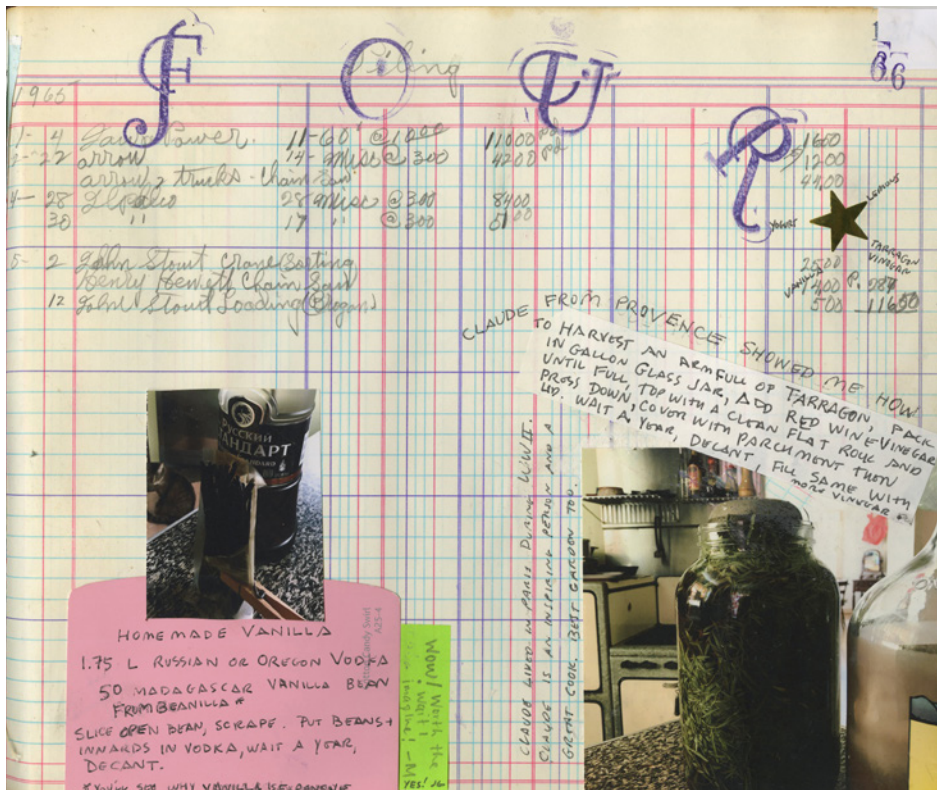 FOUR
Piling
1
66
1966
11-60' @ 1000 11000 pd
1-22 arrow 14- misc @ 300 4200 pd
1200
arrow trucks - Chain Saw
4-28 28 misc @ 300 8400
30 " 17 " @ 300 5100
LEMONS
YOGURT
TARRAGON
VINEGAR
VANILLA
5-2 John Stout Crane Sorting 2500
Henry Hewett Chain Saw 400
12 John Stout Loading (Oregon) 500 11650
CLAUDE FROM PROVENCE SHOWED ME HOW
TO HARVEST AN ARMFULL OF TARRAGON, PACK
IN GALLON GLASS JAR, ADD RED WINE VINEGAR
UNTIL FULL, TOP WITH A CLEAN FLAT ROCK AND
PRESS DOWN, COVER WITH PARCHMENT THEN
LID. WAIT A YEAR, DECANT, FILL SAME WITH
MORE VINEGAR
CLAUDE LIVED IN PARIS DURING WWII.
CLAUDE IS AN INSPIRING PERSON AND A
GREAT COOK, BEST GARDEN TOO.
РУССКИЙ
СТАНДАРТ
HOMEMADE VANILLA
1.75 L RUSSIAN OR OREGON VODKA
50 MADAGASCAR VANILLA BEAN
FROM BEANILLA *
SLICE OPEN BEAN, SCRAPE. PUT BEANS +
INNARDS IN VODKA, WAIT A YEAR,
DECANT.
* YOU'LL SEE WHY VANILLA IS
Wow! Worth the
wait,
imagine! -M
YES! JG